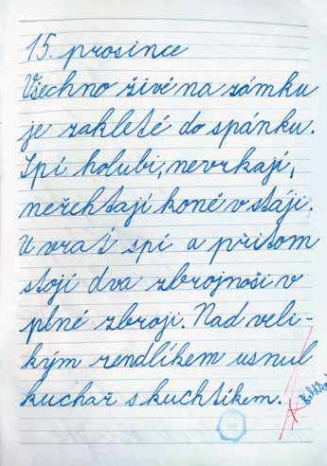 15. prosince
Všechno živé na zámku
je zakleté do spánku.
Spí holubi, nevrkají,
neřehtají koně v stáji.
U vrat spí a přitom
stojí dva zbrojnoši v
plné zbroji. Nad veli-
kým rendlíkem usnul
kuchař s kuchtíkem.